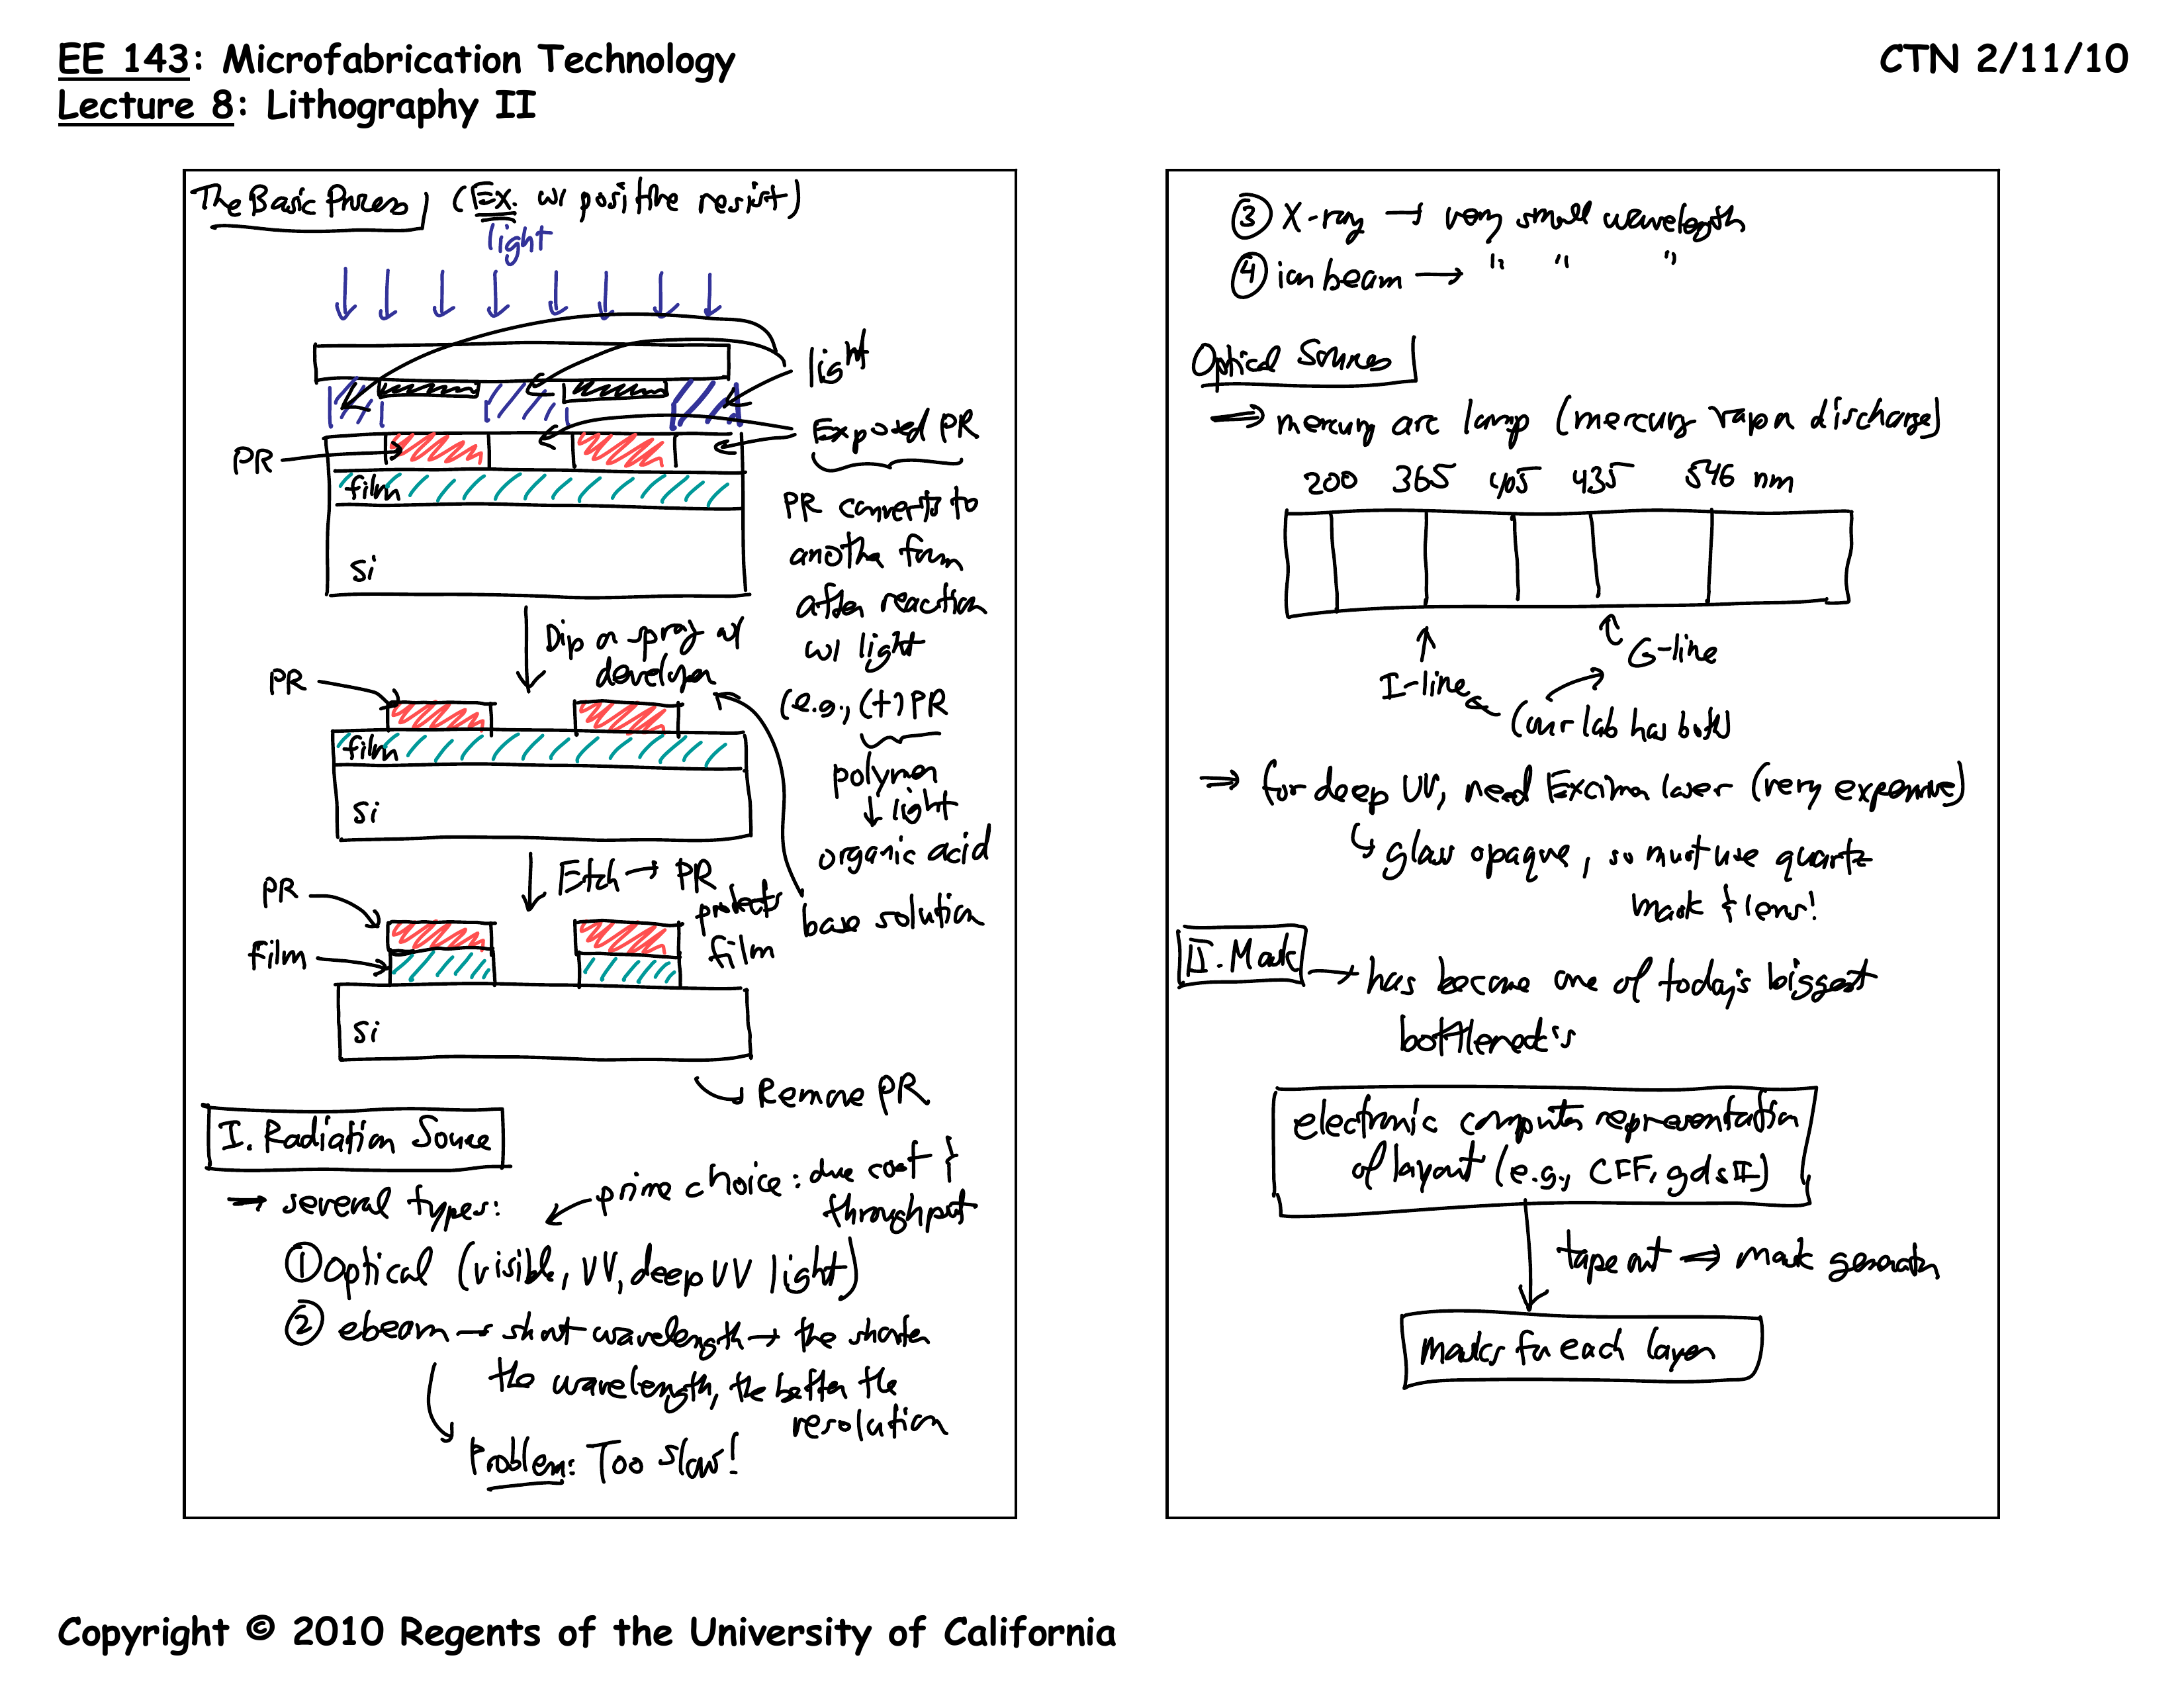 EE 143: Microfabrication Technology
Lecture 8: Lithography II
CTN 2/11/10
The Basic Process (Ex. w/ positive resist)
light
light
Exposed PR
PR
film
Si
PR converts to
another form
after reaction
w/ light
(e.g., (+) PR
polymer
↓ light
organic acid
base solution
Dip or spray w/
developer
PR
film
Si
Etch → PR
protects
film
PR
film
Si
Remove PR
I. Radiation Source
⇒ several types:
prime choice: due cost &
throughput
① Optical (visible, UV, deep UV light)
② ebeam → short wavelength → the shorter
the wavelength, the better the
resolution
Problem: Too slow!
③ X-ray → very small wavelength
④ ion beam → " " "
Optical Sources
⇒ mercury arc lamp (mercury vapor discharge)
200 365 405 435 546 nm
I-line
G-line
(our lab has both)
⇒ for deep UV, need Excimer laser (very expensive)
glass opaque, so must use quartz
mask & lens!
II. Mask → has become one of today's biggest
bottleneck's
electronic computer representation
of layout (e.g., CIF, gdsII)
tape out ⇒ mask generator
masks for each layer
Copyright © 2010 Regents of the University of California